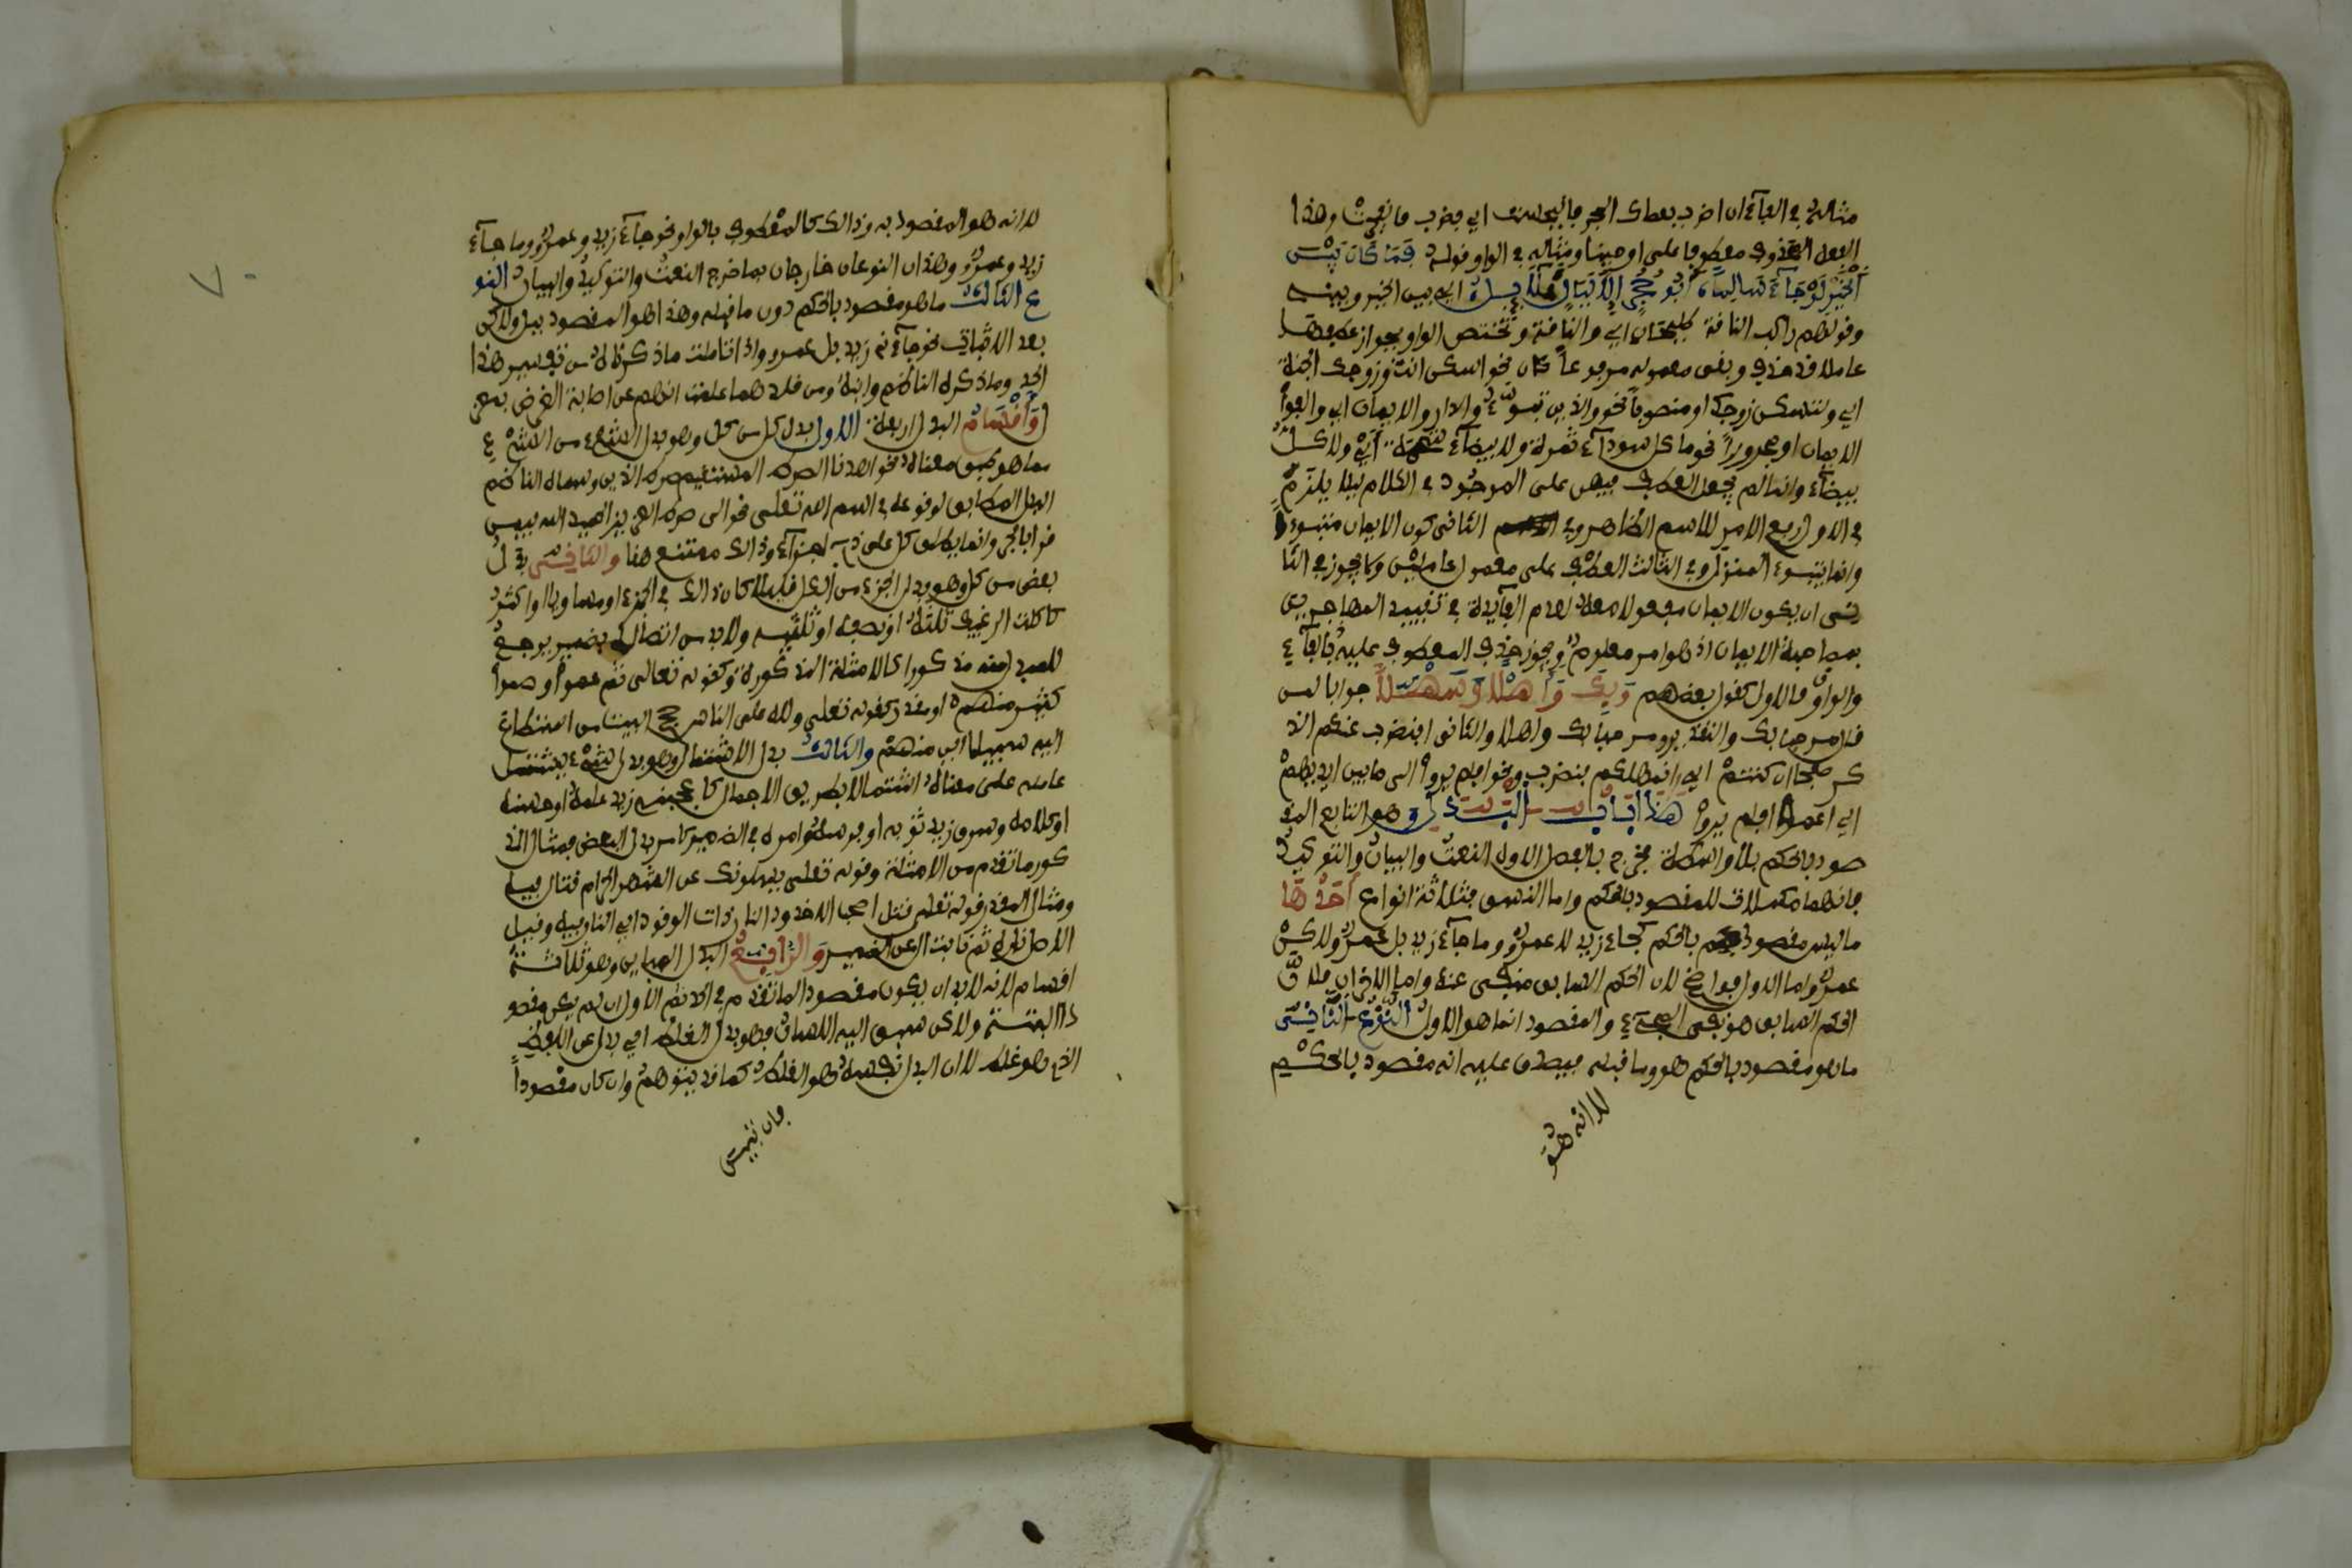 مثاله في الفاء ان اضرب بعصاك الحجر فانبجست اي فضرب فانبجست وهذا
الفعل المحذوف معطوف على اوحينا ومثاله في الواو قوله فما كان بين
الخير لو جاء سالما ابو حجر الا ليال قلايل اي بين الخير وبينه
وقولهم راكب الناقة طليحان اي والناقة وتختص الواو بجواز عطفها
عاملا قد حذف وبقي معموله مرفوعا كان نحو اسكن انت وزوجك الجنة
اي وليسكن زوجك او منصوبا نحو والذين تبوءو الدار والايمان اي والفوا
الايمان او مجرورا نحو ما كل سوداء تمرة ولا بيضاء شحمة اي ولا كل
بيضاء وانما لم يجعل العطف فيهن على الموجود في الكلام ليلا يلزم
في الاول رفع الامر للاسم الظاهر وفي الثاني كون الايمان متبوءا
وانما يتبوء المنزل وفي الثالث العطف على معمول عاملين ولا يجوز في الثا
ني ان يكون الايمان مفعولا معه لعدم الفايدة في تقييد المهاجرين
بمصاحبة الايمان اذ هو امر معلوم ويجوز حذف المعطوف عليه بالفاء
والواو فالاول كقول بعضهم وبك واهلا وسهلا جوابا لمن
قال مرحبا بك والتقدير ومرحبا بك واهلا والثاني افنضرب عنكم الذ
كر صفحا ان كنتم اي انهملكم فنضرب ونحو افلم يروا الى ما بين ايديهم
اي اعموا افلم يروا هذا باب البدل وهو التابع المق
صود بالحكم بلا واسطة فخرج بالفصل الاول النعت والبيان والتوكيد
فانها مكملات للمقصود بالحكم واما النسق فثلاثة انواع احدها
ما ليس مقصودا بالحكم كجاء زيد لا عمرو وما جاء زيد بل عمرو ولاكن
عمرو اما الاول فواضح لان الحكم السابق منفي عنه واما الاخران فلان
الحكم السابق هو نفي المجيء والمقصود انما هو الاول النوع الثاني
ما هو مقصود بالحكم هو وما قبله فيصدق عليه انه مقصود بالحكم
لا انه هو
لا انه هو المقصود به وذالك كالمعطوف بالواو نحو جاء زيد وعمرو وما جاء
زيد وعمرو وهذان النوعان خارجان بما خرج النعت والتوكيد والبيان النو
ع الثالث ما هو مقصود بالحكم دون ما قبله وهذا هو المقصود ببل ولاكن
بعد الاثبات نحو جاءني زيد بل عمرو واذا تاملت ما ذكرناه من تفسير هذا
الحد وما ذكره الناظم وابنه ومن قلدهما علمت انهم عن اصابة الغرض بمعز
ل واقسام البدل اربعة الاول بدل كل من كل وهو بدل الشيء من الشيء
مما هو طبق معناه نحو اهدنا الصراط المستقيم صراط الذين وسماه الناظم
البدل المطابق لوقوعه في اسم الله تعلى نحو الى صراط العزيز الحميد الله فيمن
قرا بالجر وانما يطلق كل على ذي اجزاء وذالك ممتنع هنا والثاني بدل
بعض من كل وهو بدل الجزء من الكل قليلا كان ذالك الجزء او مساويا او اكثر
كاكلت الرغيف ثلثه او نصفه او ثلثيه ولا بد من اتصاله بضمير يرجع
للمبدل منه مذكورا كالامثلة المذكورة وكقوله تعالى ثم عموا وصموا
كثير منهم او مقدر كقوله تعلى ولله على الناس حج البيت من استطاع
اليه سبيلا اي منهم والثالث بدل الاشتمال وهو بدل شيء يشتمل
عامله على معناه اشتمالا بطريق الاجمال كاعجبني زيد علمه او حسنه
او كلامه وسرق زيد ثوبه او فرسه وامره في الضمير كامر بدل البعض فمثال المذ
كور ما تقدم من الامثلة وقوله تعلى يسلونك عن الشهر الحرام قتال فيه
ومثال المقدر قوله تعلى قتل اصحاب الاخدود النار ذات الوقود اي النار فيه وقيل
الاصل ناره ثم نابت ال عن الضمير والرابع البدل المباين وهو ثلاثة
اقسام لانه لا بد ان يكون مقصودا كما تقدم في الحد ثم الاول ان لم يكن مقصو
دا البتة ولاكن سبق اليه اللسان فهو بدل الغلط اي بدل عن اللفظ
الذي هو غلط لا ان البدل نفسه هو الغلط كما قد يتوهم وان كان مقصودا
فان تبين